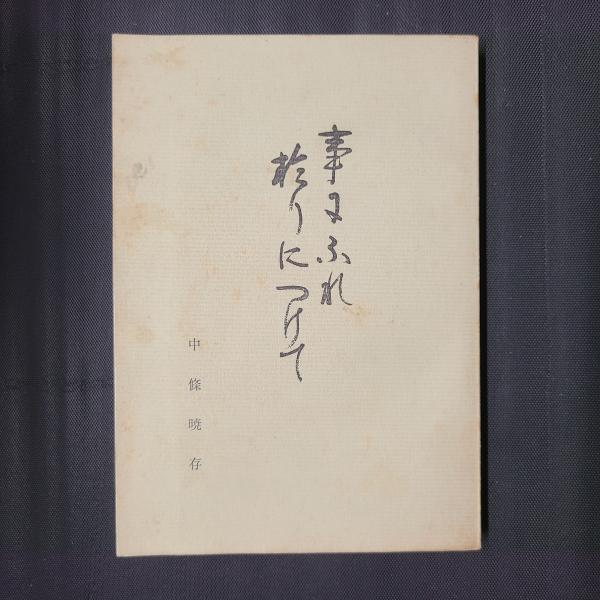 事にふれ
於りにつけて
中條暁存